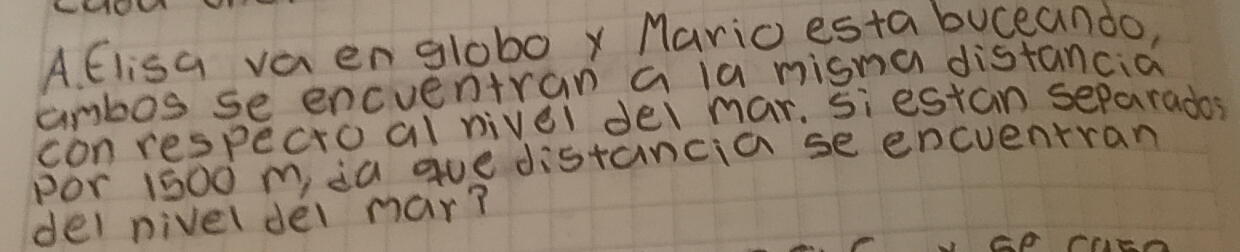 A. Elisa va en globo y Mario esta buceando,
ambos se encuentran a la misma distancia
con respecto al nivel del mar. si estan separados
por 1500 m, ¿a que distancia se encuentran
del nivel del mar?